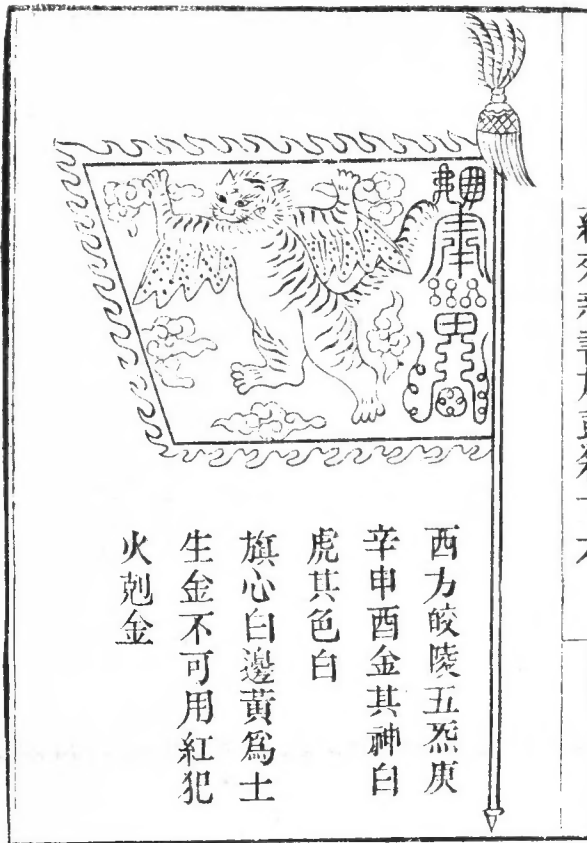 西方皎陵五炁庚
辛申酉金其神白
虎其色白
旗心白邊黃爲土
生金不可用紅犯
火剋金